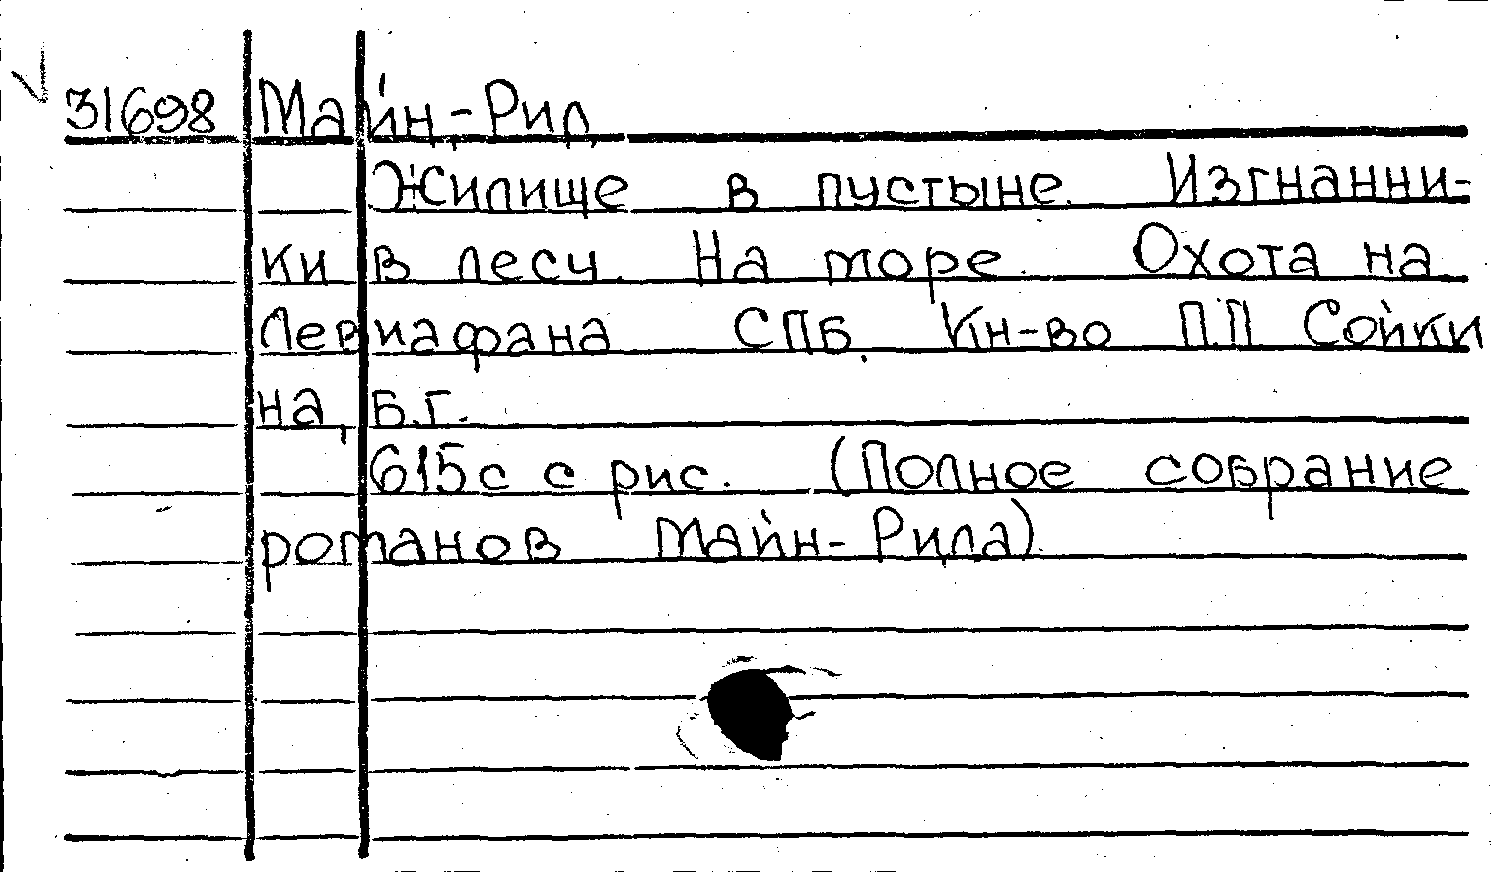 31698 Майн-Рид
Жилище в пустыне. Изгнанни-
ки в лесу. На море. Охота на
Левиафана СПБ. Кн-во П.П. Сойки
на, Б.г.
615с с рис. (Полное собрание
романов Майн-Рида)